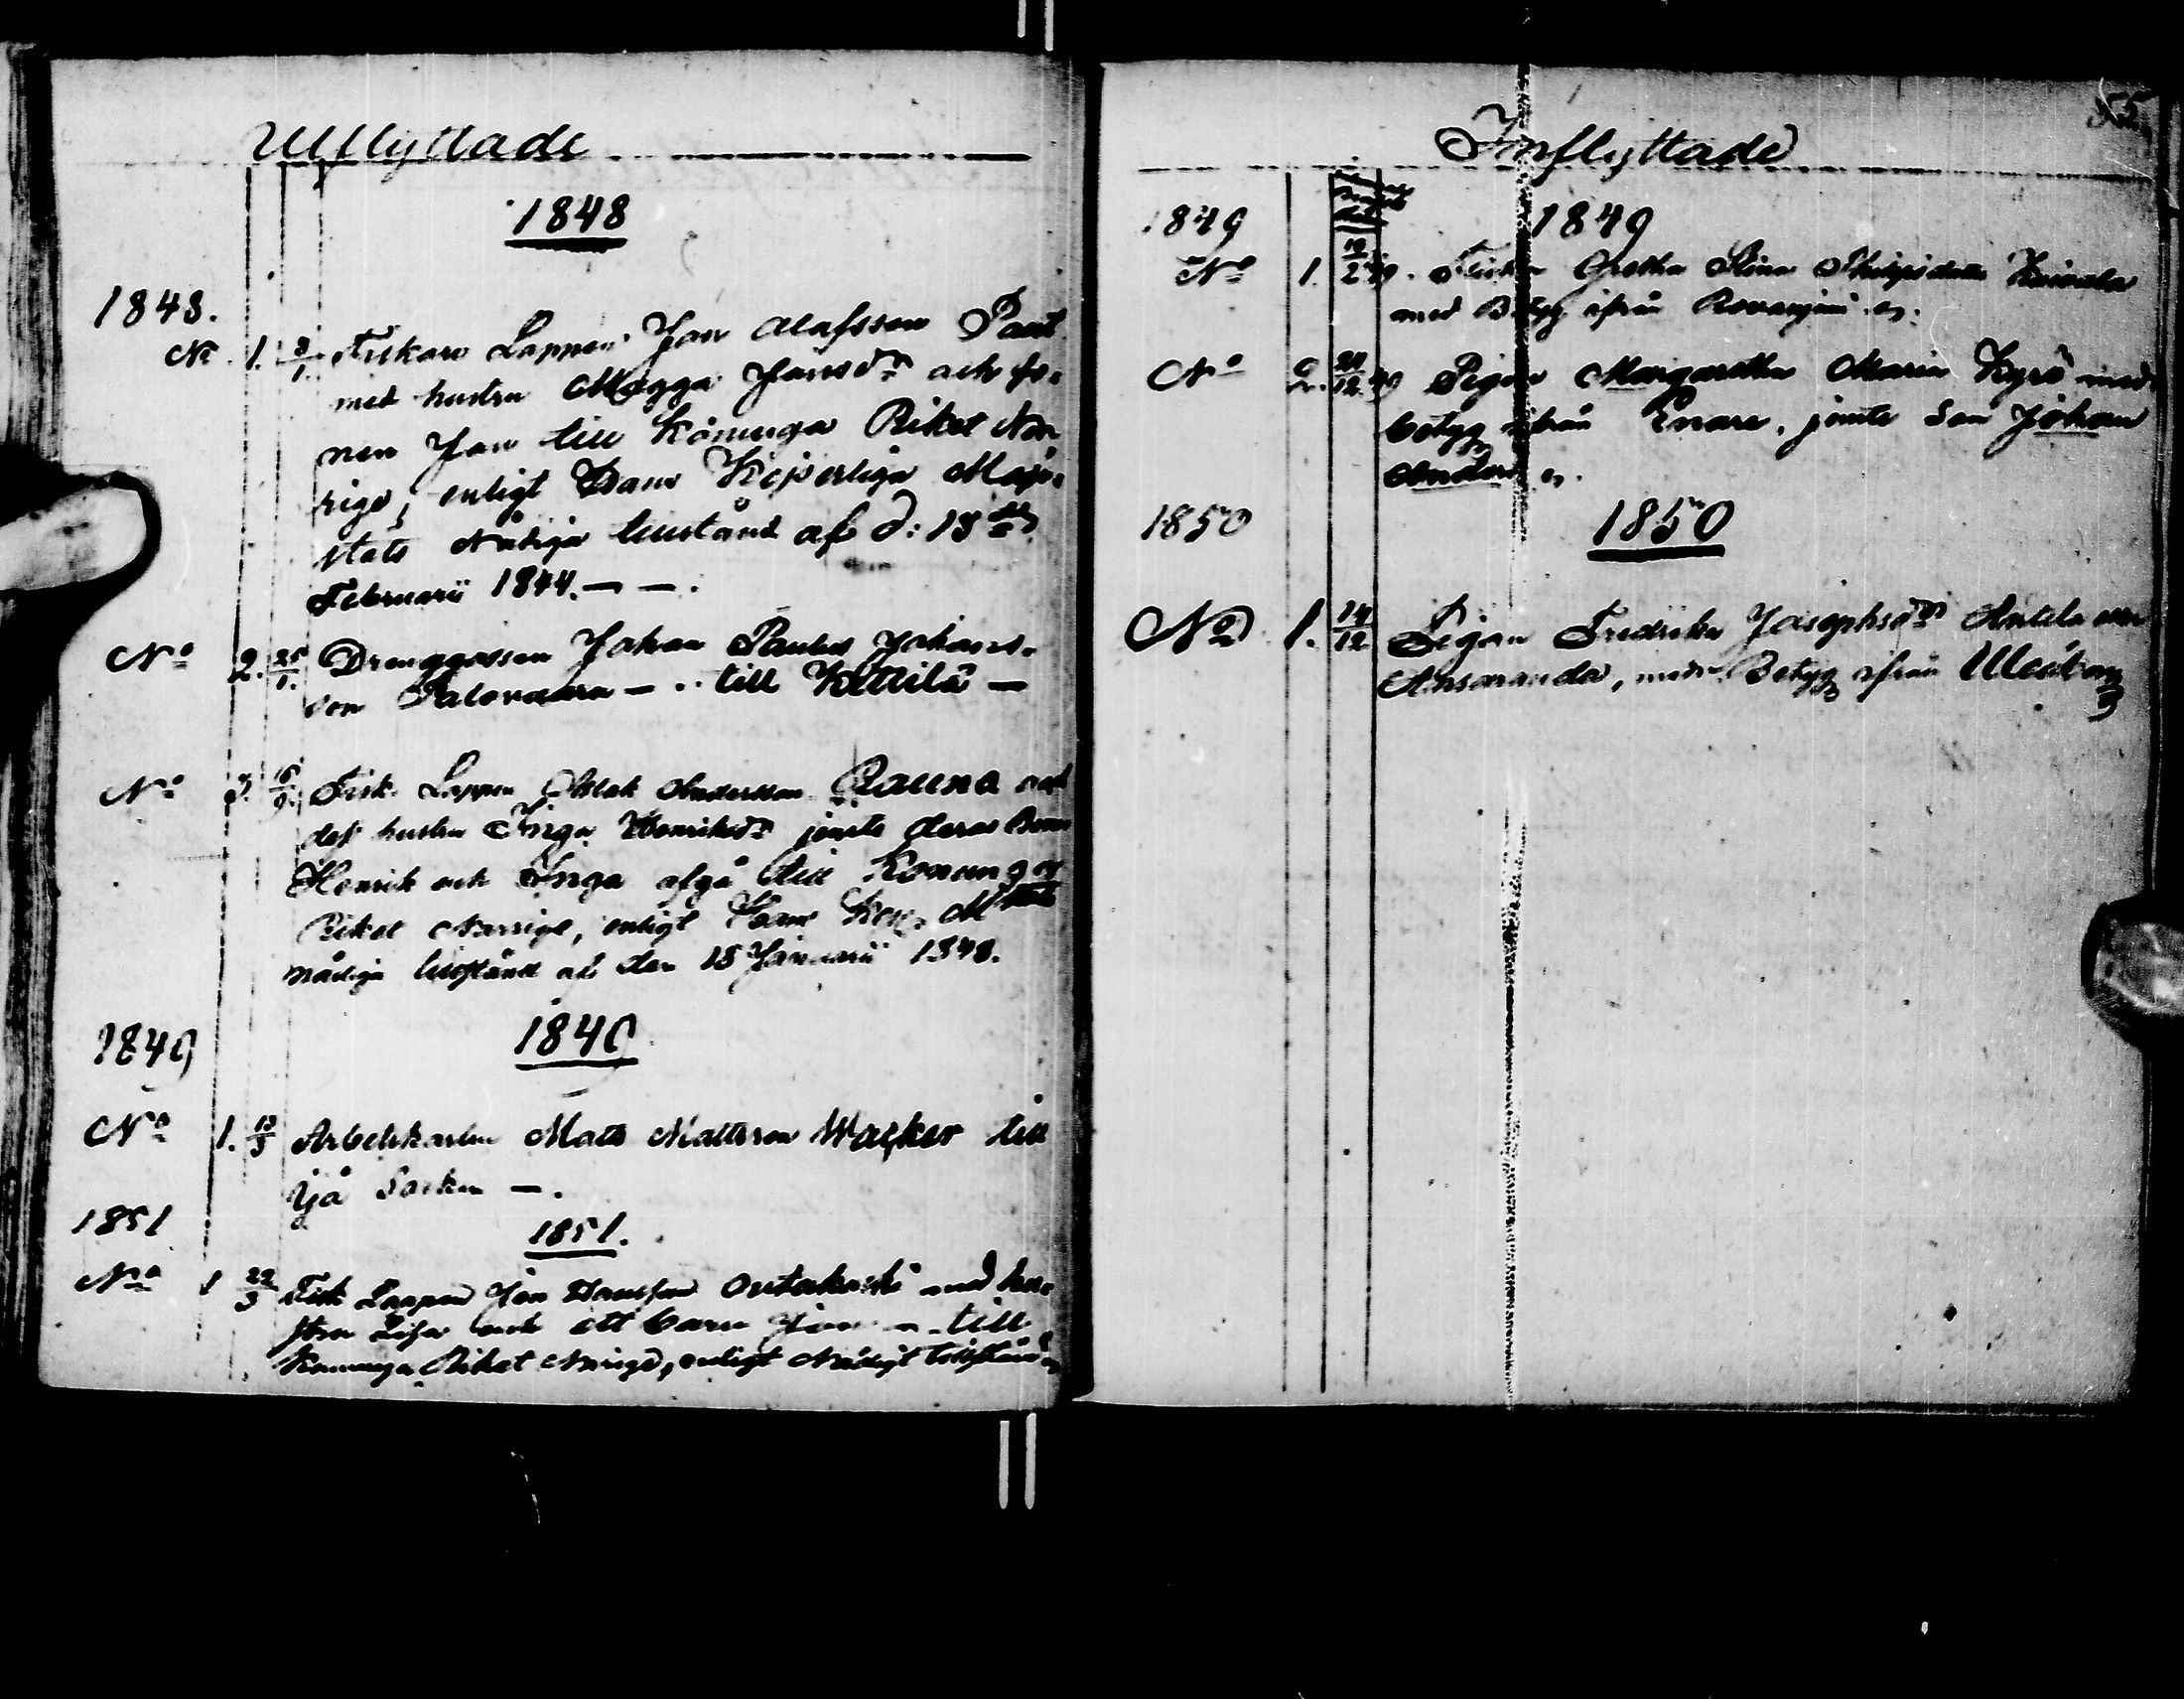 Utflyttade
1848
1848.
No 1. 3/1. Fiskare Lappen Jon Olafsson Paut
med hustru Magga Jonsdr och so-
nen Jon till Konunga Riket Nor-
rige, enligt Hans Kejserliga Maje-
stäts Nådiga tillstånd af d: 15de
Februarii 1844. — — .
No 2. 25/1. Drenggossen Johan Paulus Johans-
son Palovaara — . till Kittilä —
No 3. 15/9. Fisk. Lappen Aslak Andersson Rauna och
dess hustru Inga Henriksdr jemte deras Barn
Henrik och Inga afgå till Konunga
Riket Norrige, enligt Hans Kejs. Mtts
nådiga tillstånd af den 15 Januarii 1848.
1849 1849
No 1. 13/3 Arbetskarlen Mats Mattsson Wacker till
Ijå Socken — .
1851 1851.
No 1 22/3 Fisk Lappen Jon Hansson Outakoski med hu-
stru Lisa och ett barn Jon — till
Konunga Riket Norrige, enligt Nådigt tillstånd
55.
Inflyttade
1849 1849
No 1. 19/2 49. Flickan Gretha Stina Philipsdotter
med Betyg ifrån Rovaniemi
No 2. 21/12 49 Pigan Margaretha Maria Kyrö med
betyg ifrån Enare, jemte Son Johan
Anders
1850 1850
No 1. 14/12 Pigan Fredrika Josephsdr Antila
med Betyg ifrån Uleåborg